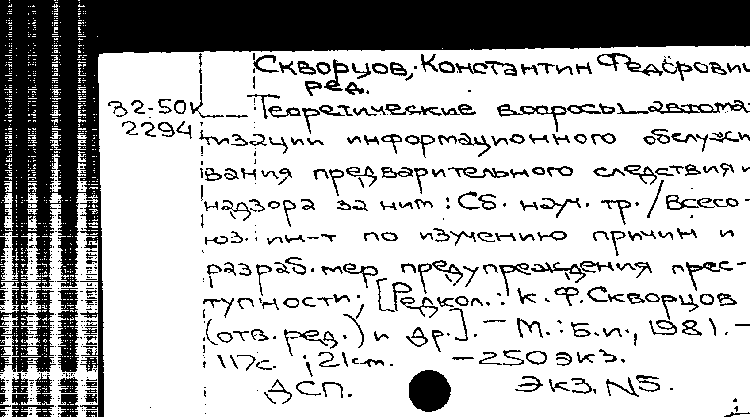 Скворцов, Константин Федорович
ред.
82-50к Теоретические вопросы автома-
2294 тизации информационного обслужи-
вания предварительного следствия и
надзора за ним : Сб. науч. тр. / Всесо-
юз. ин-т по изучению причин и
разраб. мер предупреждения прес-
тупности; [Редкол.: К. Ф. Скворцов
(отв. ред.) и др.]. - М. : Б.и., 1981. -
117с. ; 21см. - 250 экз.
ДСП. Экз. N5.